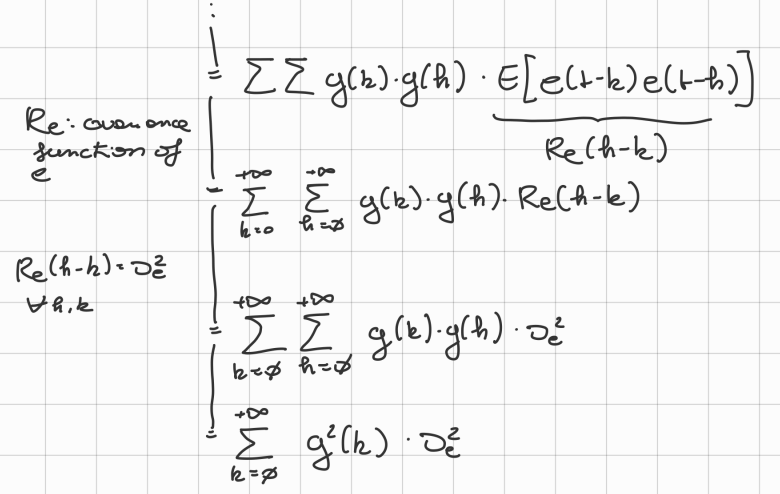 ⋮
= ∑ ∑ g(k)·g(h) · E[e(t-k)e(t-h)]
Re(h-k)
Re: covariance
function of
e
= ∑_{k=0}^{+∞} ∑_{h=0}^{+∞} g(k)·g(h)· Re(h-k)
Re(h-k) = σ_e^2
∀h,k
= ∑_{k=0}^{+∞} ∑_{h=0}^{+∞} g(k)·g(h) · σ_e^2
= ∑_{k=0}^{+∞} g^2(k) · σ_e^2